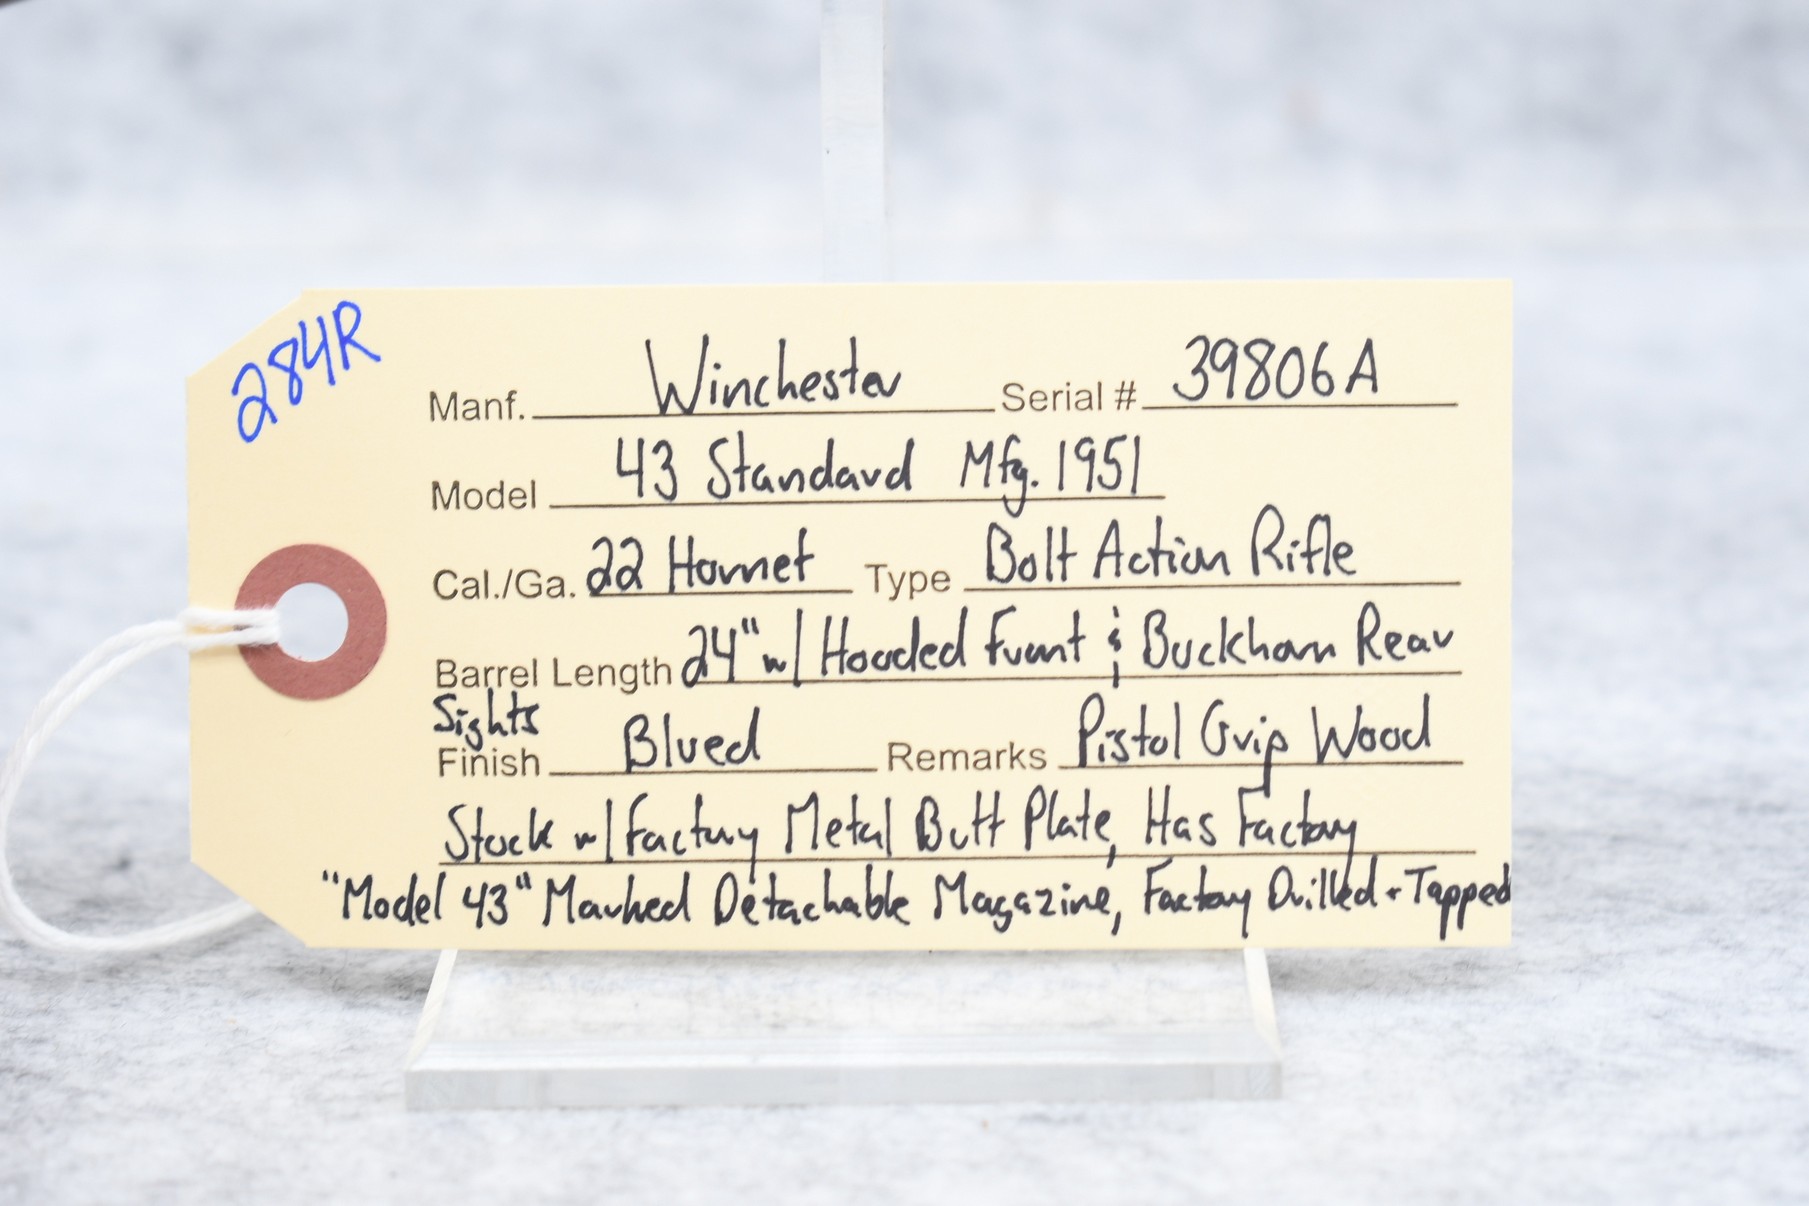 284R
Manf. Winchester Serial # 39806A
Model 43 Standard Mfg. 1951
Cal./Ga. 22 Hornet Type Bolt Action Rifle
Barrel Length 24" w/ Hooded Front & Buckhorn Rear
Sights
Finish Blued Remarks Pistol Grip Wood
Stock w/ Factory Metal Butt Plate, Has Factory
"Model 43" Marked Detachable Magazine, Factory Drilled + Tapped